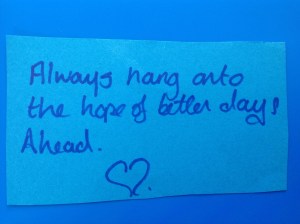 Always hang onto
the hope of better days
Ahead.